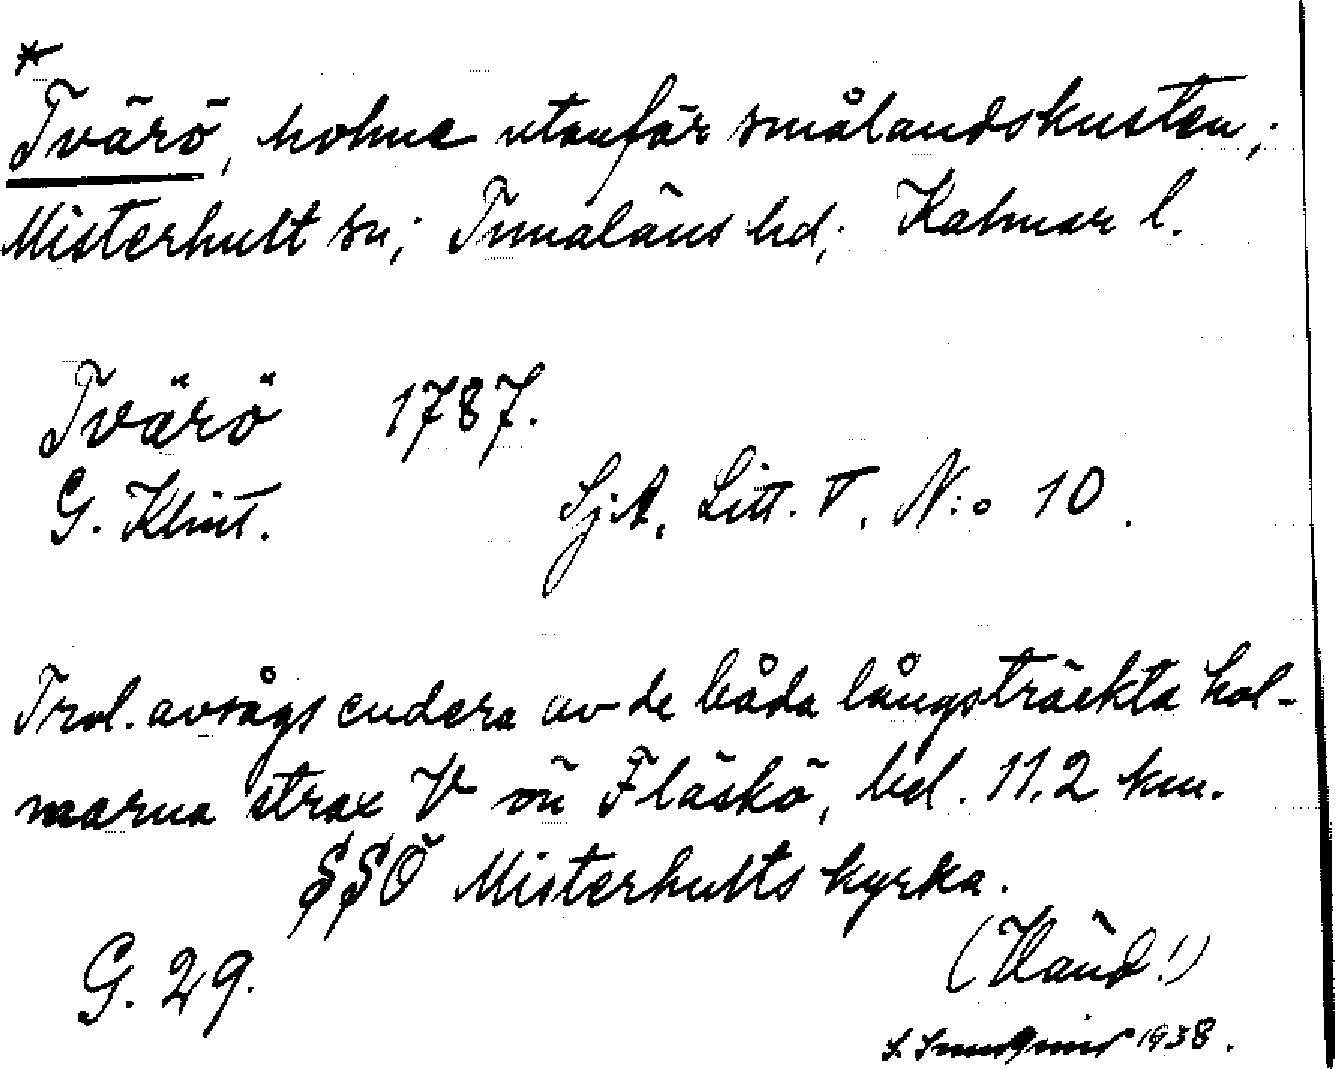 *
Tvärö, holme utanför smålandskusten;
Misterhult sn; Tunaläns hd; Kalmar l.
Tvärö 1787.
G. Klint. Sj.A. Litt. V. N:o 10.
Trol. avsågs endera av de båda långsträckta hol-
marna strax V om Fläskö, bel. 11.2 km.
SSÖ Misterhults kyrka.
G. 29. (Händ!)
1938.